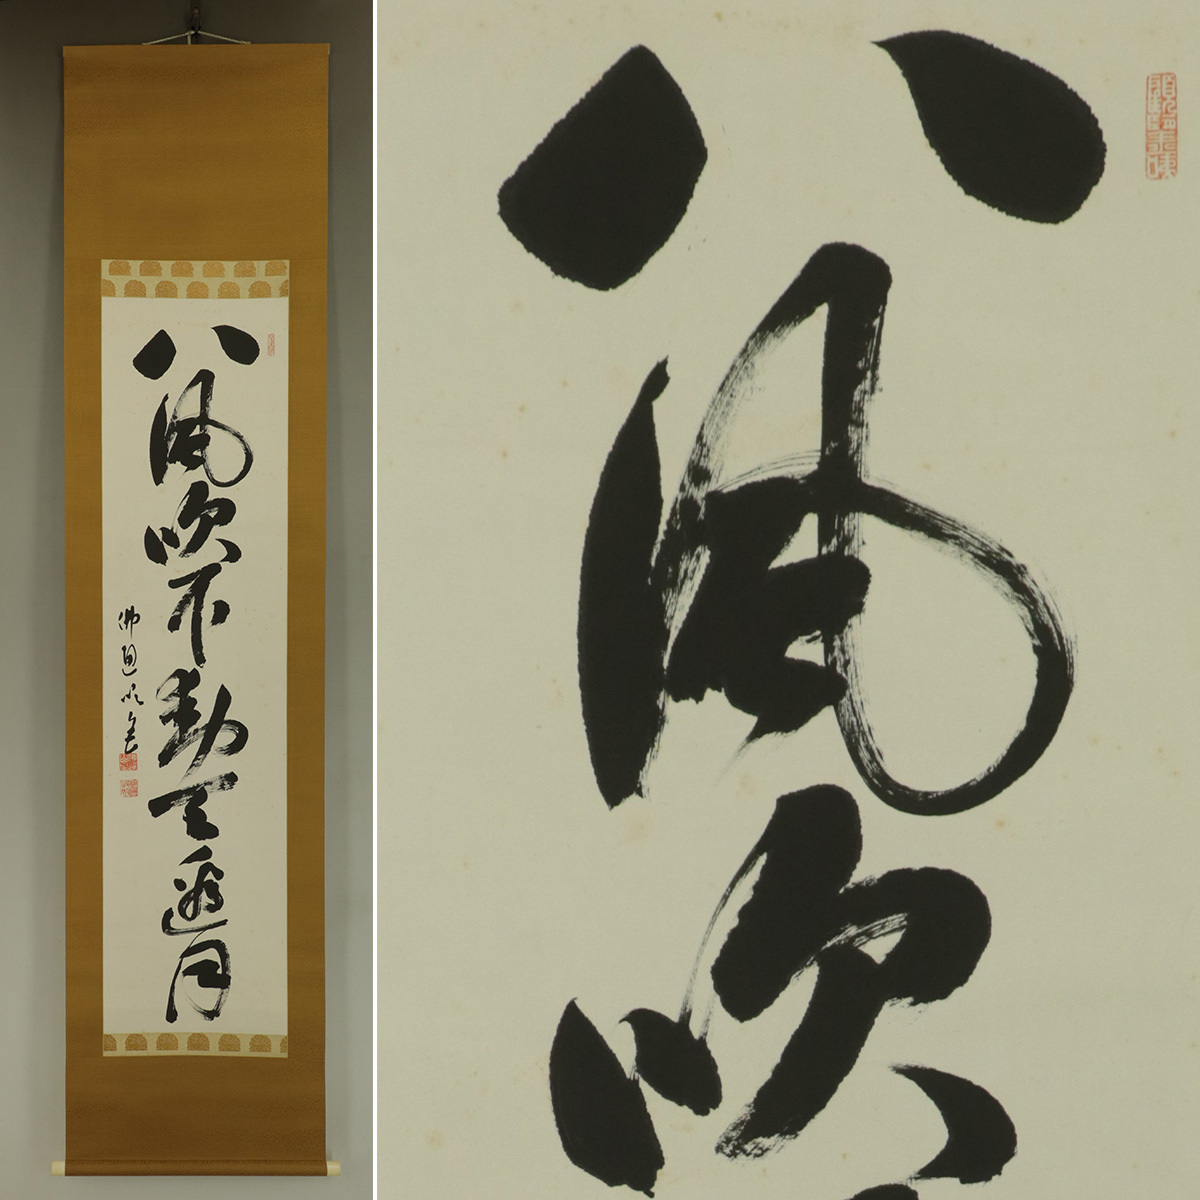 八風吹不動天邊月
佛通
八風吹